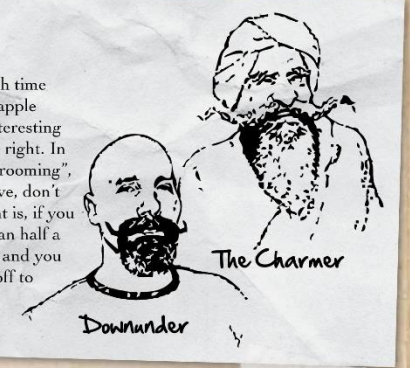 h time
apple
teresting
right. In
rooming",
ve, don't
nt is, if you
an half a
and you
off to
The Charmer
Downunder